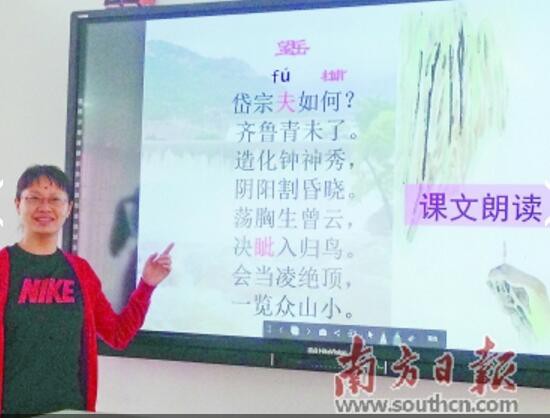 望岳
fú 杜甫
岱宗夫如何？
齐鲁青未了。
造化钟神秀，
阴阳割昏晓。
荡胸生曾云，
决眦入归鸟。
会当凌绝顶，
一览众山小。
课文朗读
NIKE
南方日报
www.southcn.com